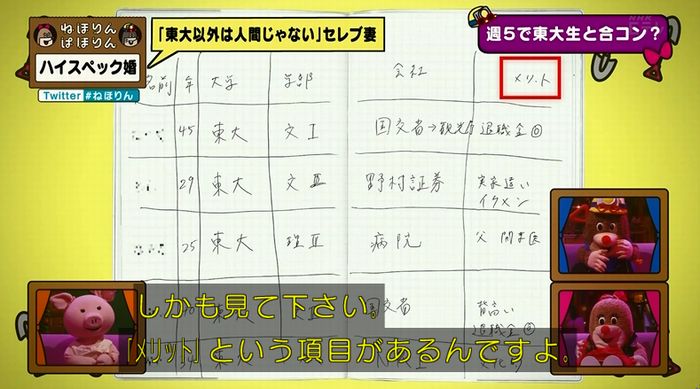 NHK
ねほりん
ぱほりん
ハイスペック婚
Twitter #ねほりん
「東大以外は人間じゃない」セレブ妻
週5で東大生と合コン?
名前 年 大学 学部 会社 メリット
45 東大 文I 国交省→観光庁 退職金◎
29 東大 文II 野村証券 実家遠い
イケメン
25 東大 理III 病院 父 開業医
国交省 背高い
退職金◎
しかも見て下さい。
「メリット」という項目があるんですよ。